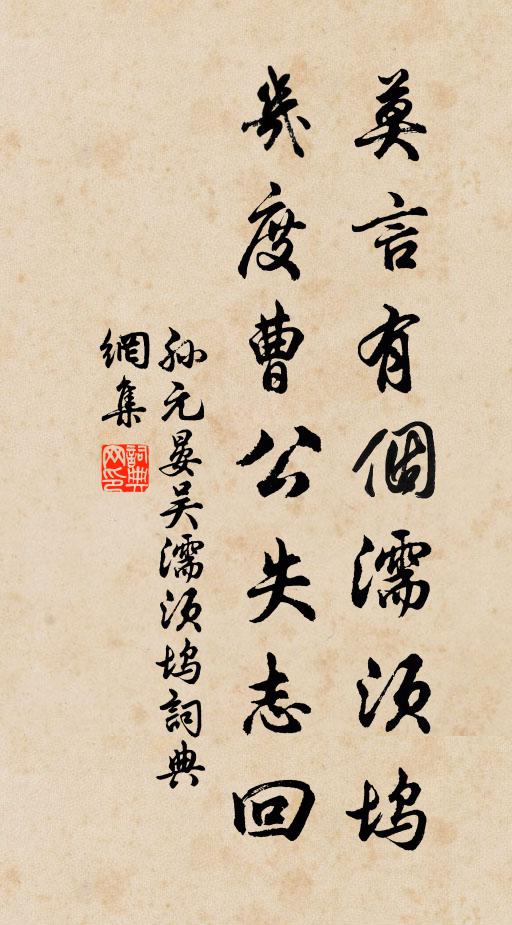 莫言有個濡須塢
幾度曹公失志回
孫元晏吴濡須塢詞典
網集
詞典网印